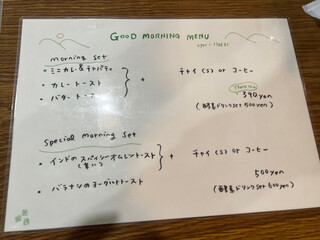 GOOD MORNING MENU
morning set
・ミニカレー&チャパティ
・カレートースト
・バタートースト
+ チャイ(S) or コーヒー
390yen
(酵素ドリンクset 500yen)
Special morning set
・インドのスパイシーオムレツトースト
+ チャイ(S) or コーヒー
・バラナシのヨーグルトトースト
500yen
(酵素ドリンクset 600yen)